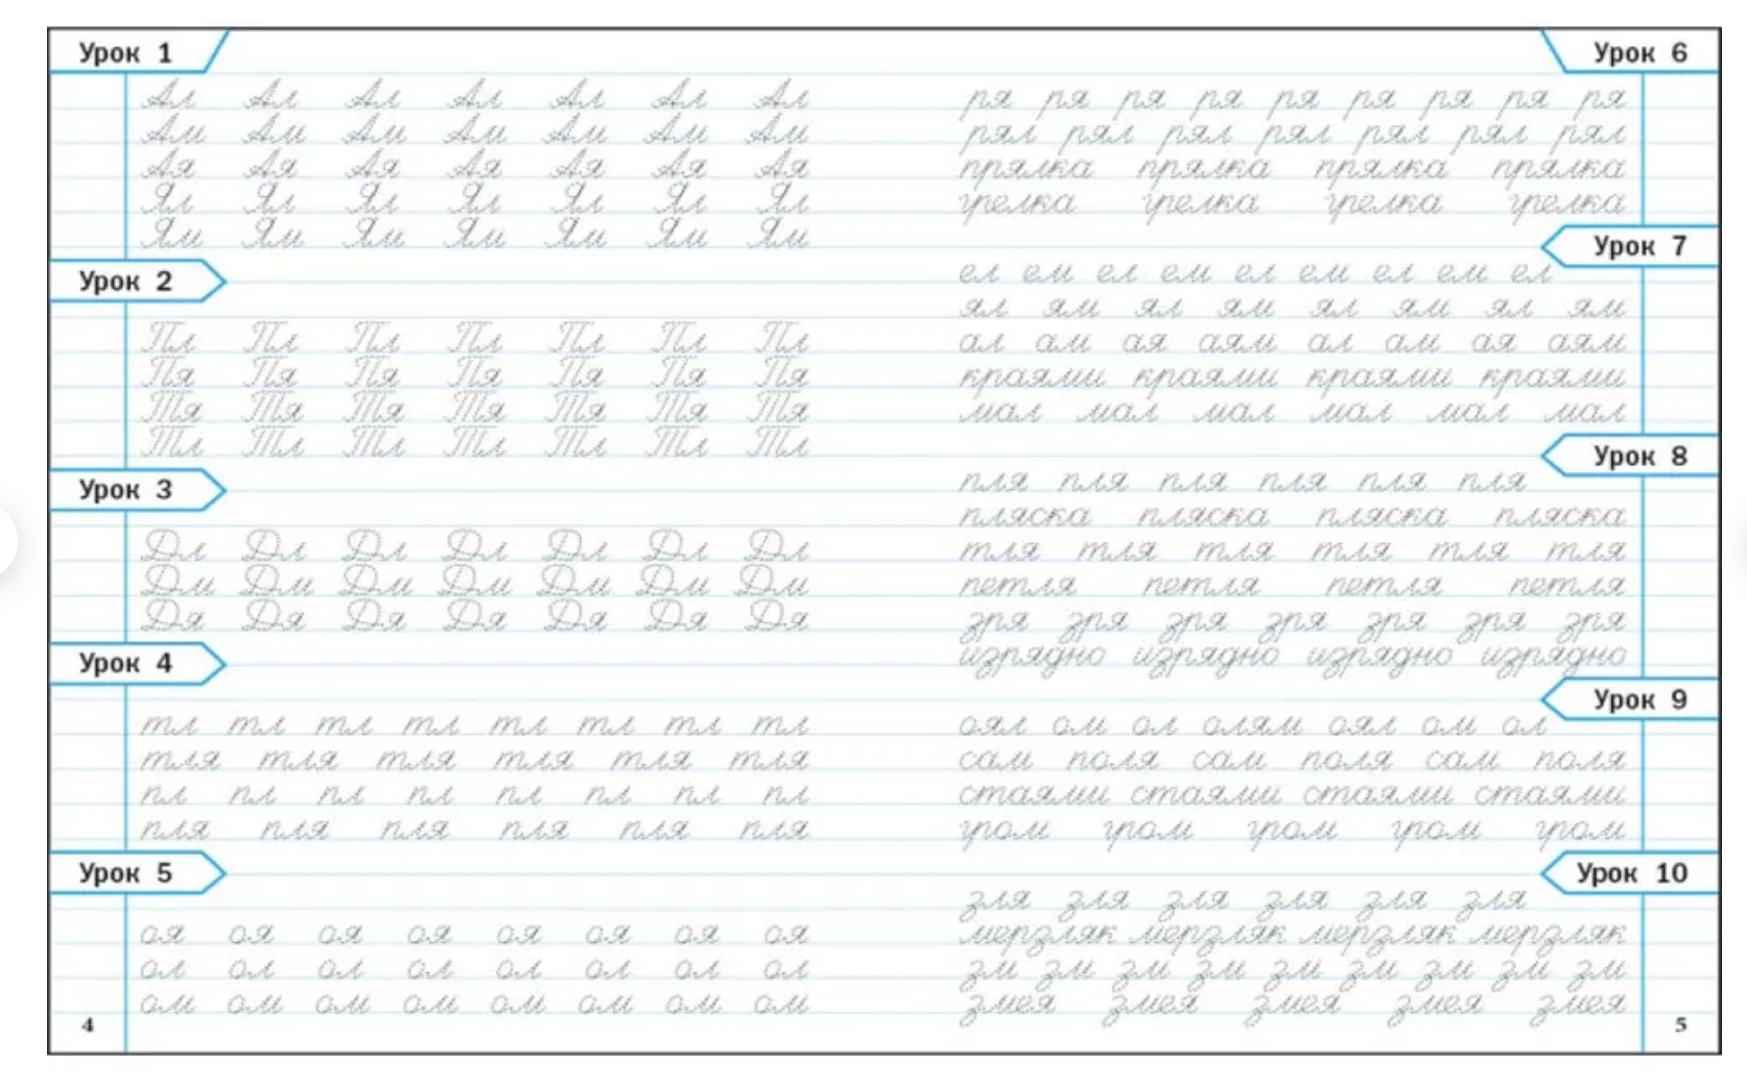 Урок 1
Ал Ал Ал Ал Ал Ал Ал
Ам Ам Ам Ам Ам Ам Ам
Ая Ая Ая Ая Ая Ая Ая
Ял Ял Ял Ял Ял Ял Ял
Ям Ям Ям Ям Ям Ям Ям
Урок 2
Пл Пл Пл Пл Пл Пл Пл
Пя Пя Пя Пя Пя Пя Пя
Тя Тя Тя Тя Тя Тя Тя
Тл Тл Тл Тл Тл Тл Тл
Урок 3
Дл Дл Дл Дл Дл Дл Дл
Дм Дм Дм Дм Дм Дм Дм
Дя Дя Дя Дя Дя Дя Дя
Урок 4
тл тл тл тл тл тл тл тл
тля тля тля тля тля тля
пл пл пл пл пл пл пл пл
пля пля пля пля пля пля
Урок 5
оя оя оя оя оя оя оя оя
ол ол ол ол ол ол ол ол
ом ом ом ом ом ом ом ом
4
Урок 6
ря ря ря ря ря ря ря ря ря
рял рял рял рял рял рял рял
прялка прялка прялка прялка
грелка грелка грелка грелка
Урок 7
ел ем ел ем ел ем ел ем ел
ял ям ял ям ял ям ял ям
ал ам ая аям ал ам ая аям
краями краями краями краями
мал мал мал мал мал мал
Урок 8
пля пля пля пля пля пля
пляска пляска пляска пляска
тля тля тля тля тля тля
петля петля петля петля
зря зря зря зря зря зря зря
изрядно изрядно изрядно изрядно
Урок 9
оял ом ол олям оял ом ол
сам поля сам поля сам поля
стаями стаями стаями стаями
гром гром гром гром гром
Урок 10
зля зля зля зля зля зля
мерзляк мерзляк мерзляк мерзляк
зм зм зм зм зм зм зм зм зм
змея змея змея змея змея
5